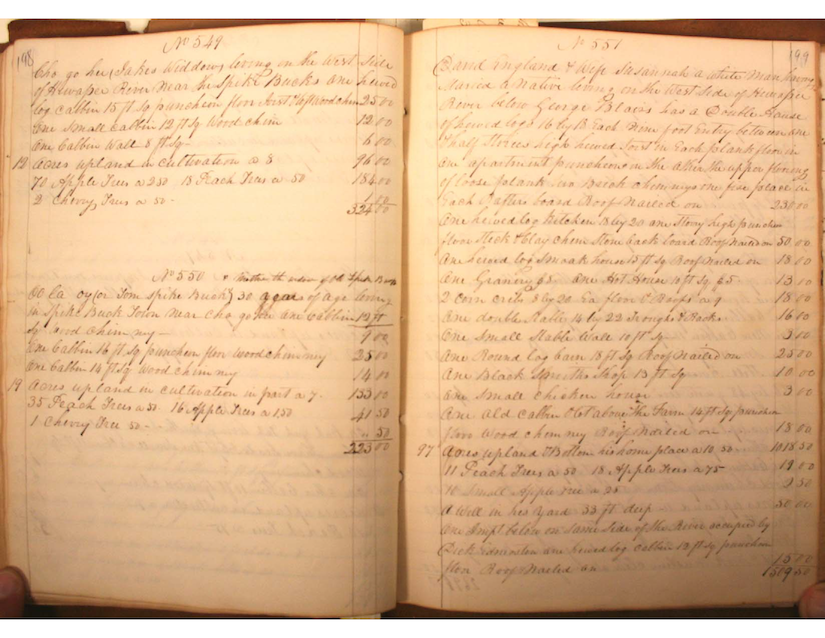 198
No 549
Cho go hee (Jakes Widdow) living in the West Side
of Hiwassee River Near the Spike Bucks one hewed
log Cabbin 15 ft Sq puncheon floor wood chim 25 00
One Small Cabbin 12 ft Sq Wood Chim 12 00
One Cabbin Wall 8 ft Sq 6 00
12 Acres upland in cultivation a 8 96 00
70 Apple Trees a 250 18 Peach Trees a 50 184 00
2 Cherry Trees a 50 - 1 00
324 00
No 550 & Mother the widow of Old Spike Buck
Oo la oy (or Tom Spike Buck) 30 years of age living
in Spike Buck Town Near Cho go hee one Cabbin 12 ft
Sq wood Chimmy - 9 00
One Cabbin 16 ft Sq puncheon floor wood chimmy 25 00
One Cabbin 14 ft Sq Wood Chimmy 14 00
19 Acres upland in cultivation in part a 7 - 133 00
35 Peach Trees a 50 16 Apple Trees a 150 41 50
1 Cherry Tree 50 - " 50
223 00
199
No 551
David England & Wife Susannah a white Man having
Maried a Native living on the West Side of Hiwassee
River below George Blairs has a Double House
of hewed logs 16 by 18 Each Room foot Entry between one
& half Stories high hewed Joist in Each plank floor in
one apartment puncheons in the other the upper floor
of loose plank two Brick chimmys one fire place in
Each Rafters board Roof Nailed on 230 00
One hewed log Kitchen 18 by 20 one Story high puncheon
floor Stick & Clay Chim Stone back board Roof nailed on 50 00
One hewed log Smoak house 15 ft Sq Roof Nailed on 18 00
One Granery 65 one Hot House 10 ft Sq 65 13 00
2 Corn Cribs 8 by 20 Ea floor & Roofs a 9 18 00
One double Stable 14 by 22 Troughs & Racks 16 00
One Small Stable Wall 10 ft Sq 3 00
One Round log barn 18 ft Sq Roof Nailed on 25 00
One Black Smiths Shop 13 ft Sq 10 00
One Small chicken house 3 00
One old Cabbin & lot above the Farm 14 ft Sq puncheon
floor Wood Chimmy Roof Nailed on 18 00
97 Acres upland & Bottom his home place a 10 50 - 1018 50
11 Peach Trees a 50 18 Apple Trees a 75 19 00
10 Small Apple Trees a 25 2 50
A Well in his Yard 33 ft deep 50 00
One Impt below on same Side of the River occupied by
Dick one hewed log Cabbin 13 ft Sq puncheon
floor Roof Nailed on 15 00
1509 50